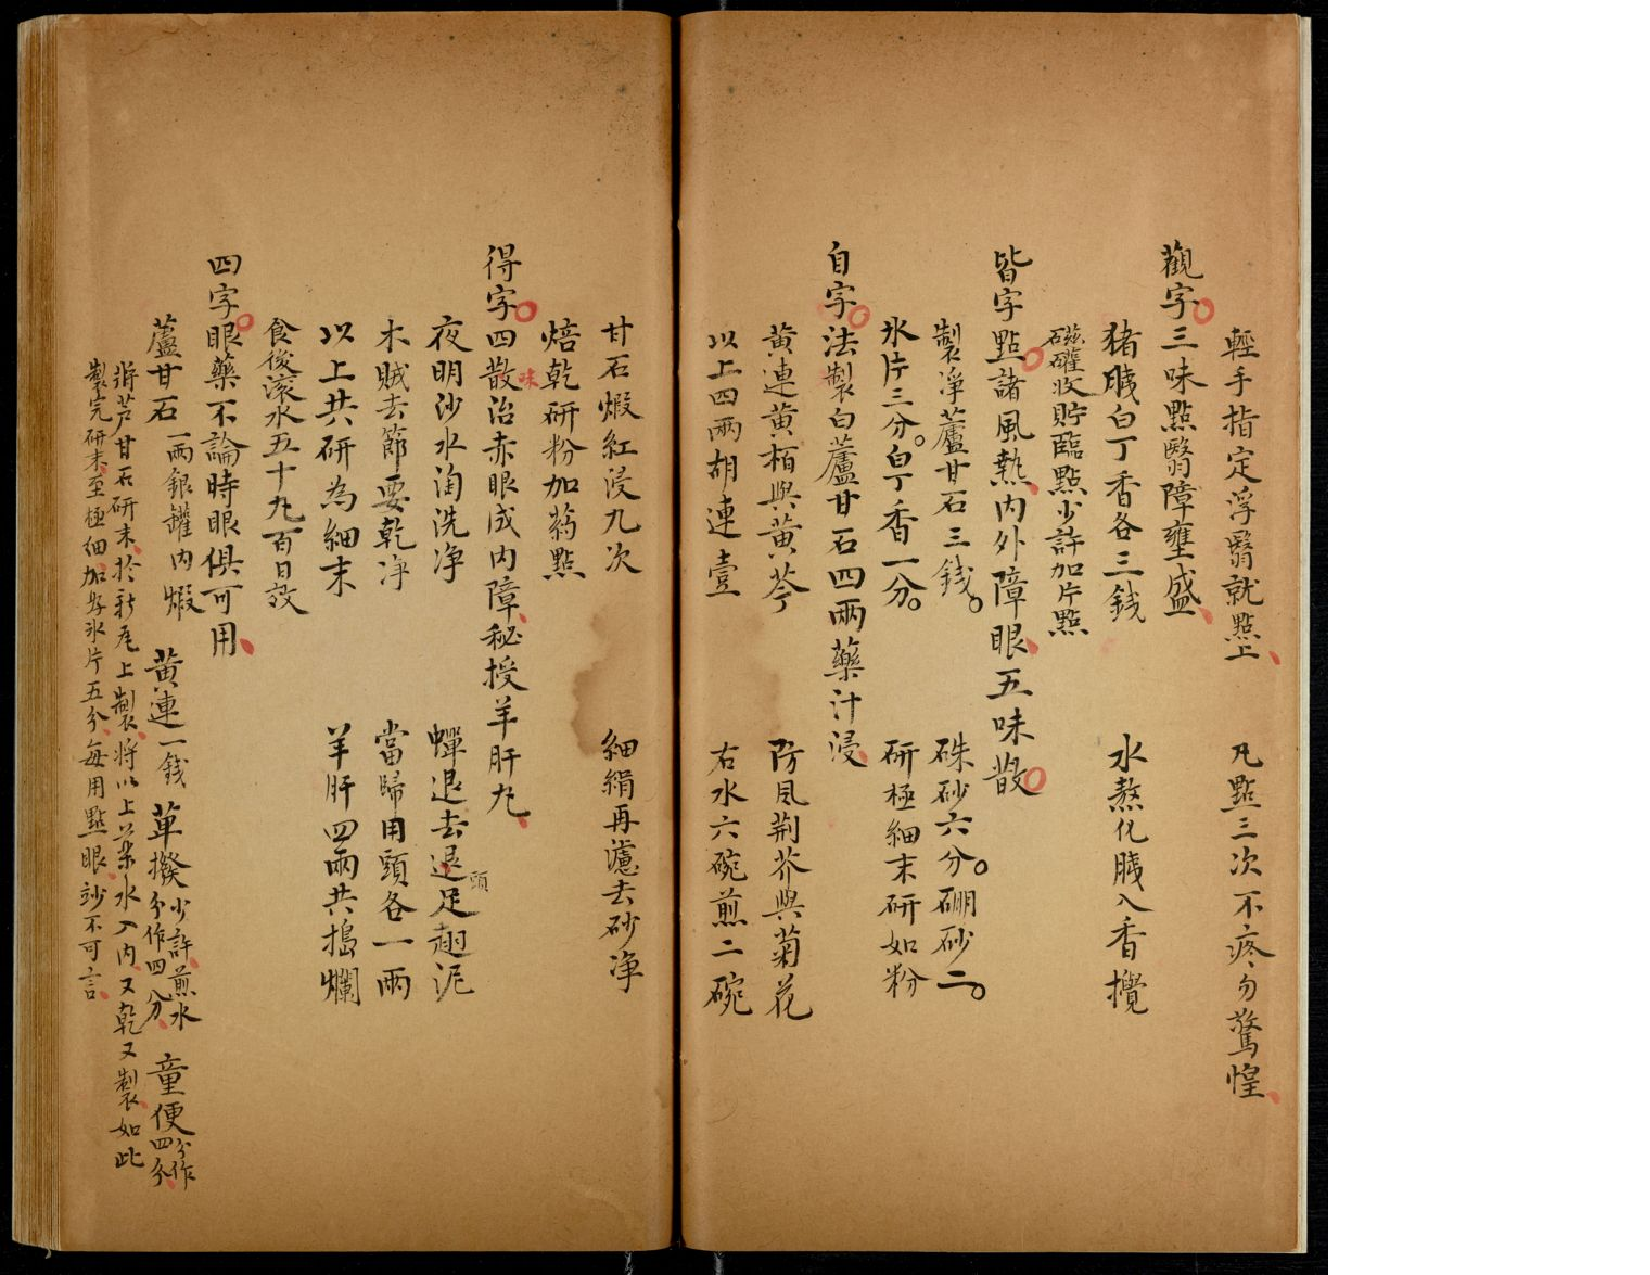 輕手指定浮翳就點上 凡點三次不疼勿驚惶
觀字三味點翳障壅盛
猪胰白丁香各三錢 水熬化胰入香攪
磁礶收貯臨點少許加片點
皆字點諸風熱内外障眼五味散
製淨蘆甘石三錢 硃砂六分硼砂二
氷片三分白丁香一分 研極細末研如粉
自字法製白蘆甘石四兩藥汁浸
黄連黄栢與黄芩 防風荆芥與菊花
以上四兩胡連壹 右水六碗煎二碗
甘石煅紅浸九次 細絹再濾去砂净
焙乾研粉加蒻點
得字四味散治赤眼成内障秘授羊肝九
夜明沙水淘洗净 蟬退去頭足翅泥
木賊去節要乾净 當歸用頭各一兩
以上共研為細末 羊肝四兩共搗爛
食後滚水五十九百日效
四字眼藥不論時眼俱可用
蘆甘石一兩銀罐内煅 黄連一錢 蓽撥少許煎水分作四分 童便分作四分
將芦甘石研末於新瓦上製將以上藥水入内又乾又製如此
製完研末至極細加好氷片五分每用點眼妙不可言